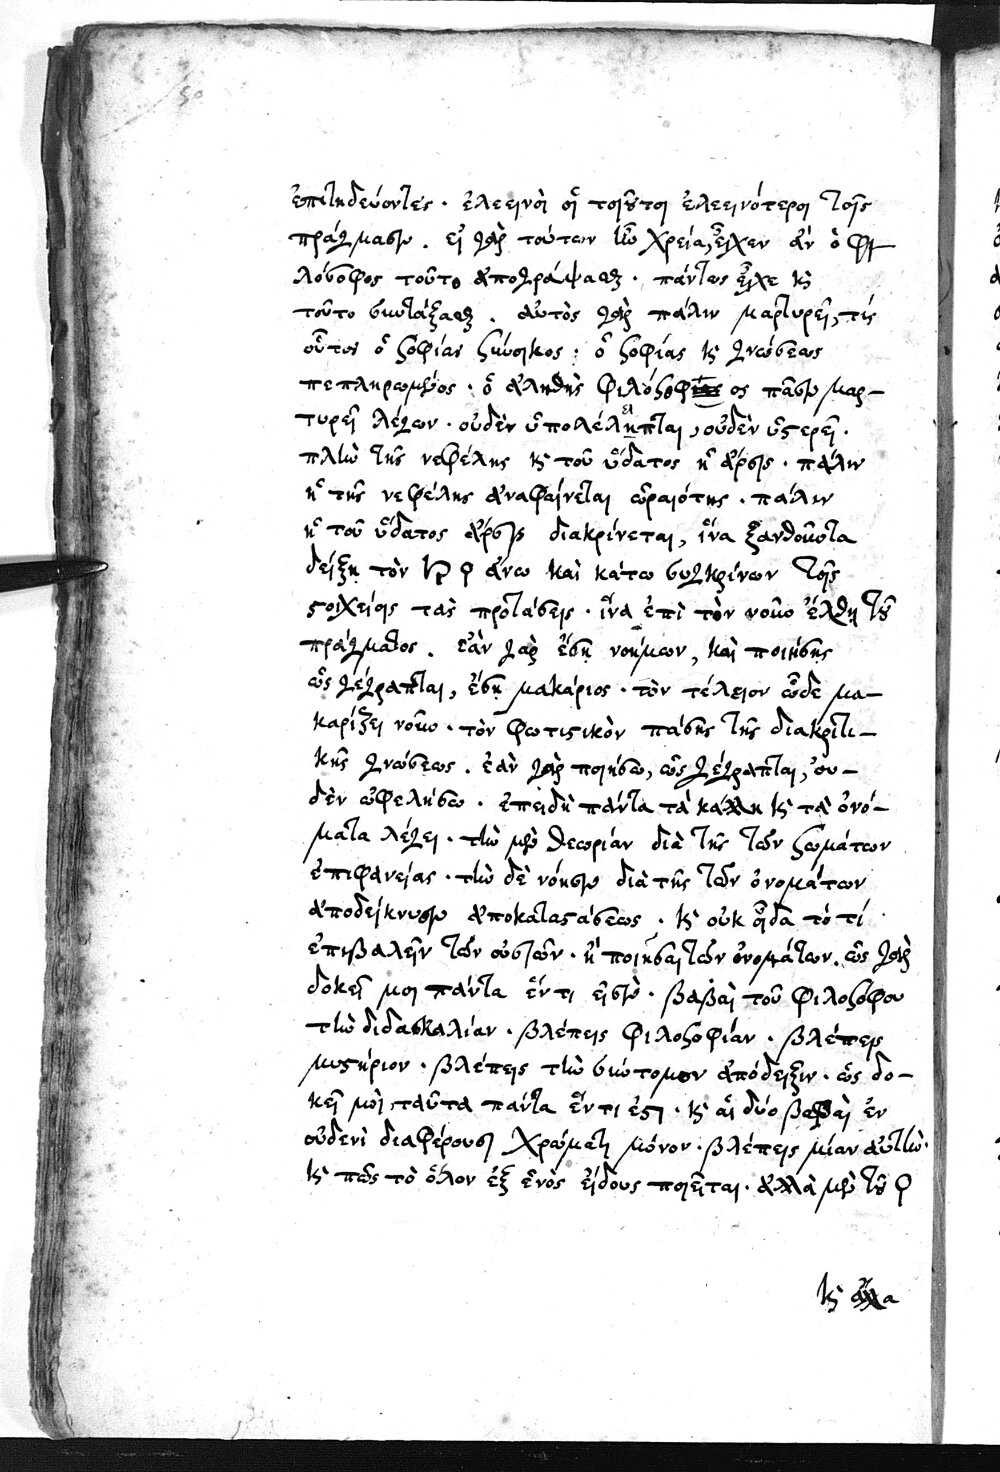 ἐπιτηδεύοντες · ἐλεεινοὶ οἱ τοιοῦτοι ἐλεεινότεροι τοῖς
πράγμασιν . εἰ γὰρ τούτων ἦν χρεία, εἶχεν ἂν ὁ φι
λόσοφος τοῦτο ἀπογράψασθαι · πάντως εἶχε καὶ
τοῦτο συντάξασθαι . αὐτὸς γὰρ πάλιν μαρτυρεῖ, τίς
οὗτος ὁ σοφίας ἔνοικος · ὁ σοφίας καὶ γνώσεως
πεπληρωμένος · ὁ ἀληθὴς φιλόσοφος πᾶσιν μαρ-
τυρεῖ λέγων · οὐδὲν ὑπολέλειπται, οὐδὲν ὑστερεῖ ·
πλὴν τῆς νεφέλης καὶ τοῦ ὕδατος ἡ ἄρσις · πάλιν
ἡ τῆς νεφέλης ἀναφαίνεται ὡραιότης · πάλιν
ἡ τοῦ ὕδατος ἄρσις διακρίνεται, ἵνα ξανθοῦντα
δείξῃ τὸν ἄνω καὶ κάτω συγκρίνων τοῖς
στοιχείοις τὰς προτάσεις · ἵνα ἐπὶ τὸν νοῦν ἔλθῃ τοῦ
πράγματος . ἐὰν γὰρ ἔσῃ νοήμων, καὶ ποιήσῃς
ὡς γέγραπται, ἔσῃ μακάριος · τὸν τέλειον ὧδε μα-
καρίζει νοῦν · τὸν φωτιστικὸν πάσης τῆς διακριτι-
κῆς γνώσεως . ἐὰν γὰρ ποιήσω, ὡς γέγραπται, οὐ-
δὲν ὠφελήσω · ἐπειδὴ πάντα τὰ κάλλη καὶ τὰ ὀνό-
ματα λέγει · τὴν μὲν θεωρίαν διὰ τῆς τῶν σωμάτων
ἐπιφανείας · τὴν δὲ νόησιν διὰ τῆς τῶν ὀνομάτων
ἀποδείκνυσιν ἀποκαταστάσεως · καὶ οὐκ οἶδα τὸ τί
ἐπιβαλεῖν τῶν οὐσιῶν · ἢ ποιῆσαι τῶν ὀνομάτων . ὡς γὰρ
δοκεῖ μοι πάντα ἕν τι εἰσίν · βαβαὶ τοῦ φιλοσόφου
τὴν διδασκαλίαν · βλέπεις φιλοσοφίαν · βλέπεις
μυστήριον · βλέπεις τὴν σύντομον ἀπόδειξιν · ὡς δο-
κεῖ μοι, ταῦτα πάντα ἕν τι ἐστὶ · καὶ αἱ δύο βαφαὶ ἐν
οὐδενὶ διαφέρουσι χρώματι μόνον · βλέπεις μίαν αὐτὴν ·
καὶ πῶς τὸ ὅλον ἐξ ἑνὸς εἴδους ποιεῖται · ἀλλὰ μὴν τοῦ